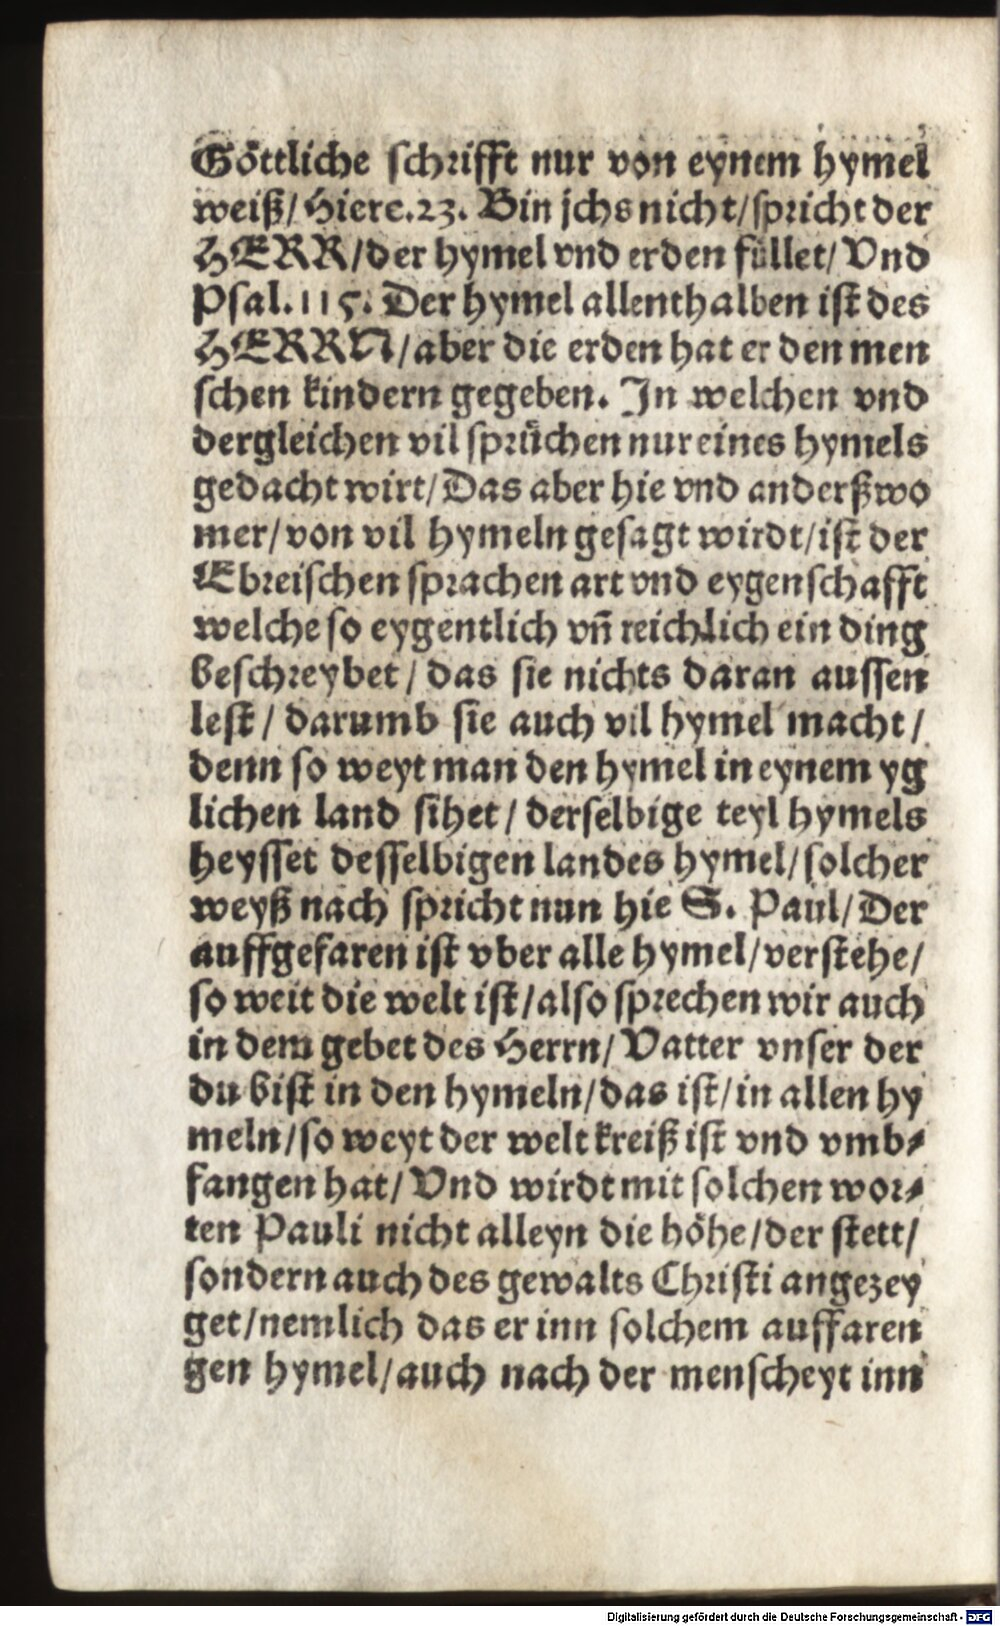 Göttliche schrifft nur von eynem hymel
weiß/ Hiere.23. Bin jchs nicht/spricht der
HERR/der hymel vnd erden füllet/ Vnd
Psal.115. Der hymel allenthalben ist des
HERRN/aber die erden hat er den men
schen kindern gegeben. In welchen vnd
dergleichen vil sprüchen nur eines hymels
gedacht wirt/ Das aber hie vnd anderßwo
mer/ von vil hymeln gesagt wirdt/ist der
Ebreischen sprachen art vnd eygenschafft
welche so eygentlich vn̄ reichlich ein ding
beschreybet/ das sie nichts daran aussen
lest/ darumb sie auch vil hymel macht/
denn so weyt man den hymel in eynem yg
lichen land sihet/ derselbige teyl hymels
heysset desselbigen landes hymel/solcher
weyß nach spricht nun hie S. Paul/ Der
auffgefaren ist vber alle hymel/verstehe/
so weit die welt ist/also sprechen wir auch
in dem gebet des Herrn/ Vatter vnser der
du bist in den hymeln/das ist/in allen hy
meln/so weyt der welt kreiß ist vnd vmb⸗
fangen hat/ Vnd wirdt mit solchen wor⸗
ten Pauli nicht alleyn die höhe/der stett/
sondern auch des gewalts Christi angezey
get/nemlich das er inn solchem auffaren
gen hymel/auch nach der menscheyt inn
Digitalisierung gefördert durch die Deutsche Forschungsgemeinschaft - DFG